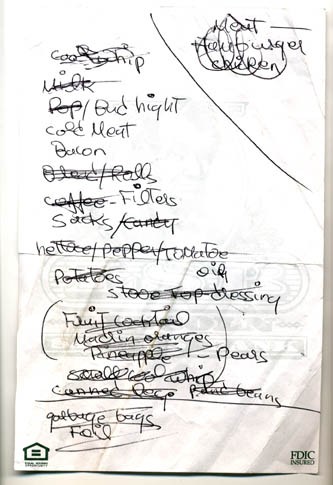 Meat
Hamburger
chicken
cool whip
Milk
Pop/Bud light
cold Meat
Bacon
Bread/Rolls
coffee-Filters
Sacks/Candy
Lettace/Pepper/Tomatoe
Potatoes oil
Stove Top dressing
Fruit Cocktail
Madrin oranges
Pineapple - Pears
small cool whip
canned
garbage bags
Foil
EQUAL HOUSING
OPPORTUNITY
FDIC
INSURED